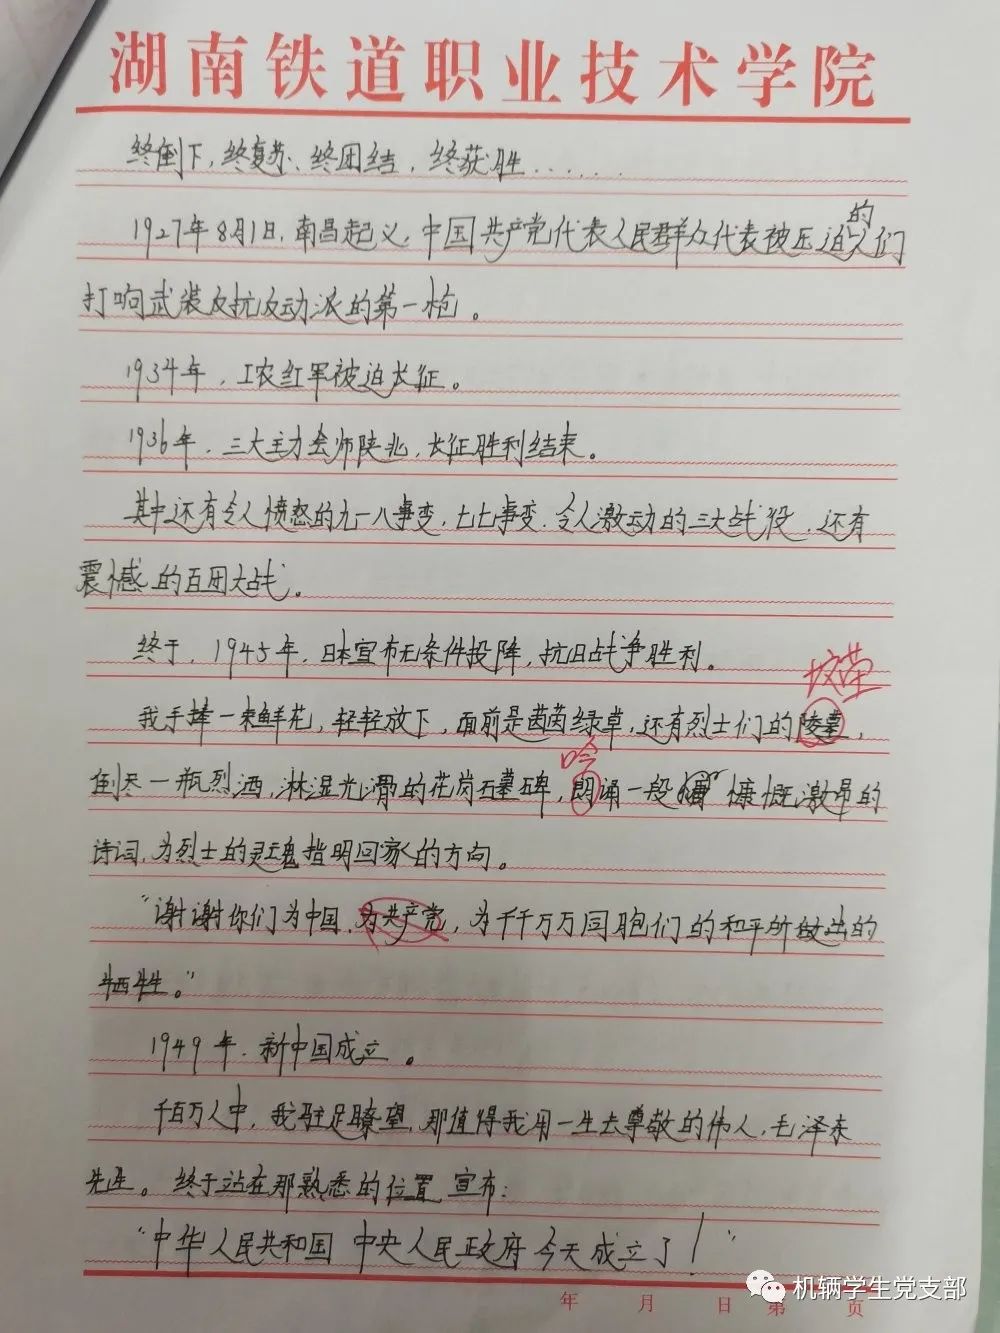 湖南铁道职业技术学院
终倒下,终复苏、终团结,终获胜......
1927年8月1日,南昌起义,中国共产党代表人民群众代表被压迫的人们
打响武装反抗反动派的第一枪。
1934年,工农红军被迫长征。
1936年,三大主力会师陕北,长征胜利结束。
其中还有令人愤怒的九一八事变,七七事变,令人激动的三大战役,还有
震憾的百团大战。
终于,1945年,日本宣布无条件投降,抗日战争胜利。
坟茔
我手捧一束鲜花,轻轻放下,面前是茵茵绿草,还有烈士们的陵墓,
吟
倒尽一瓶烈酒,淋湿光滑的花岗石墓碑,朗诵一段慷慨激昂的
诗词,为烈士的灵魂指明回家的方向。
“谢谢你们为中国,为共产党,为千千万万同胞们的和平所做出的
牺牲。”
1949年,新中国成立。
千百万人中,我驻足瞭望,那值得我用一生去尊敬的伟人,毛泽东
先生。终于站在那熟悉的位置宣布:
“中华人民共和国 中央人民政府今天成立了!”
年 月 日 第 页
机辆学生党支部